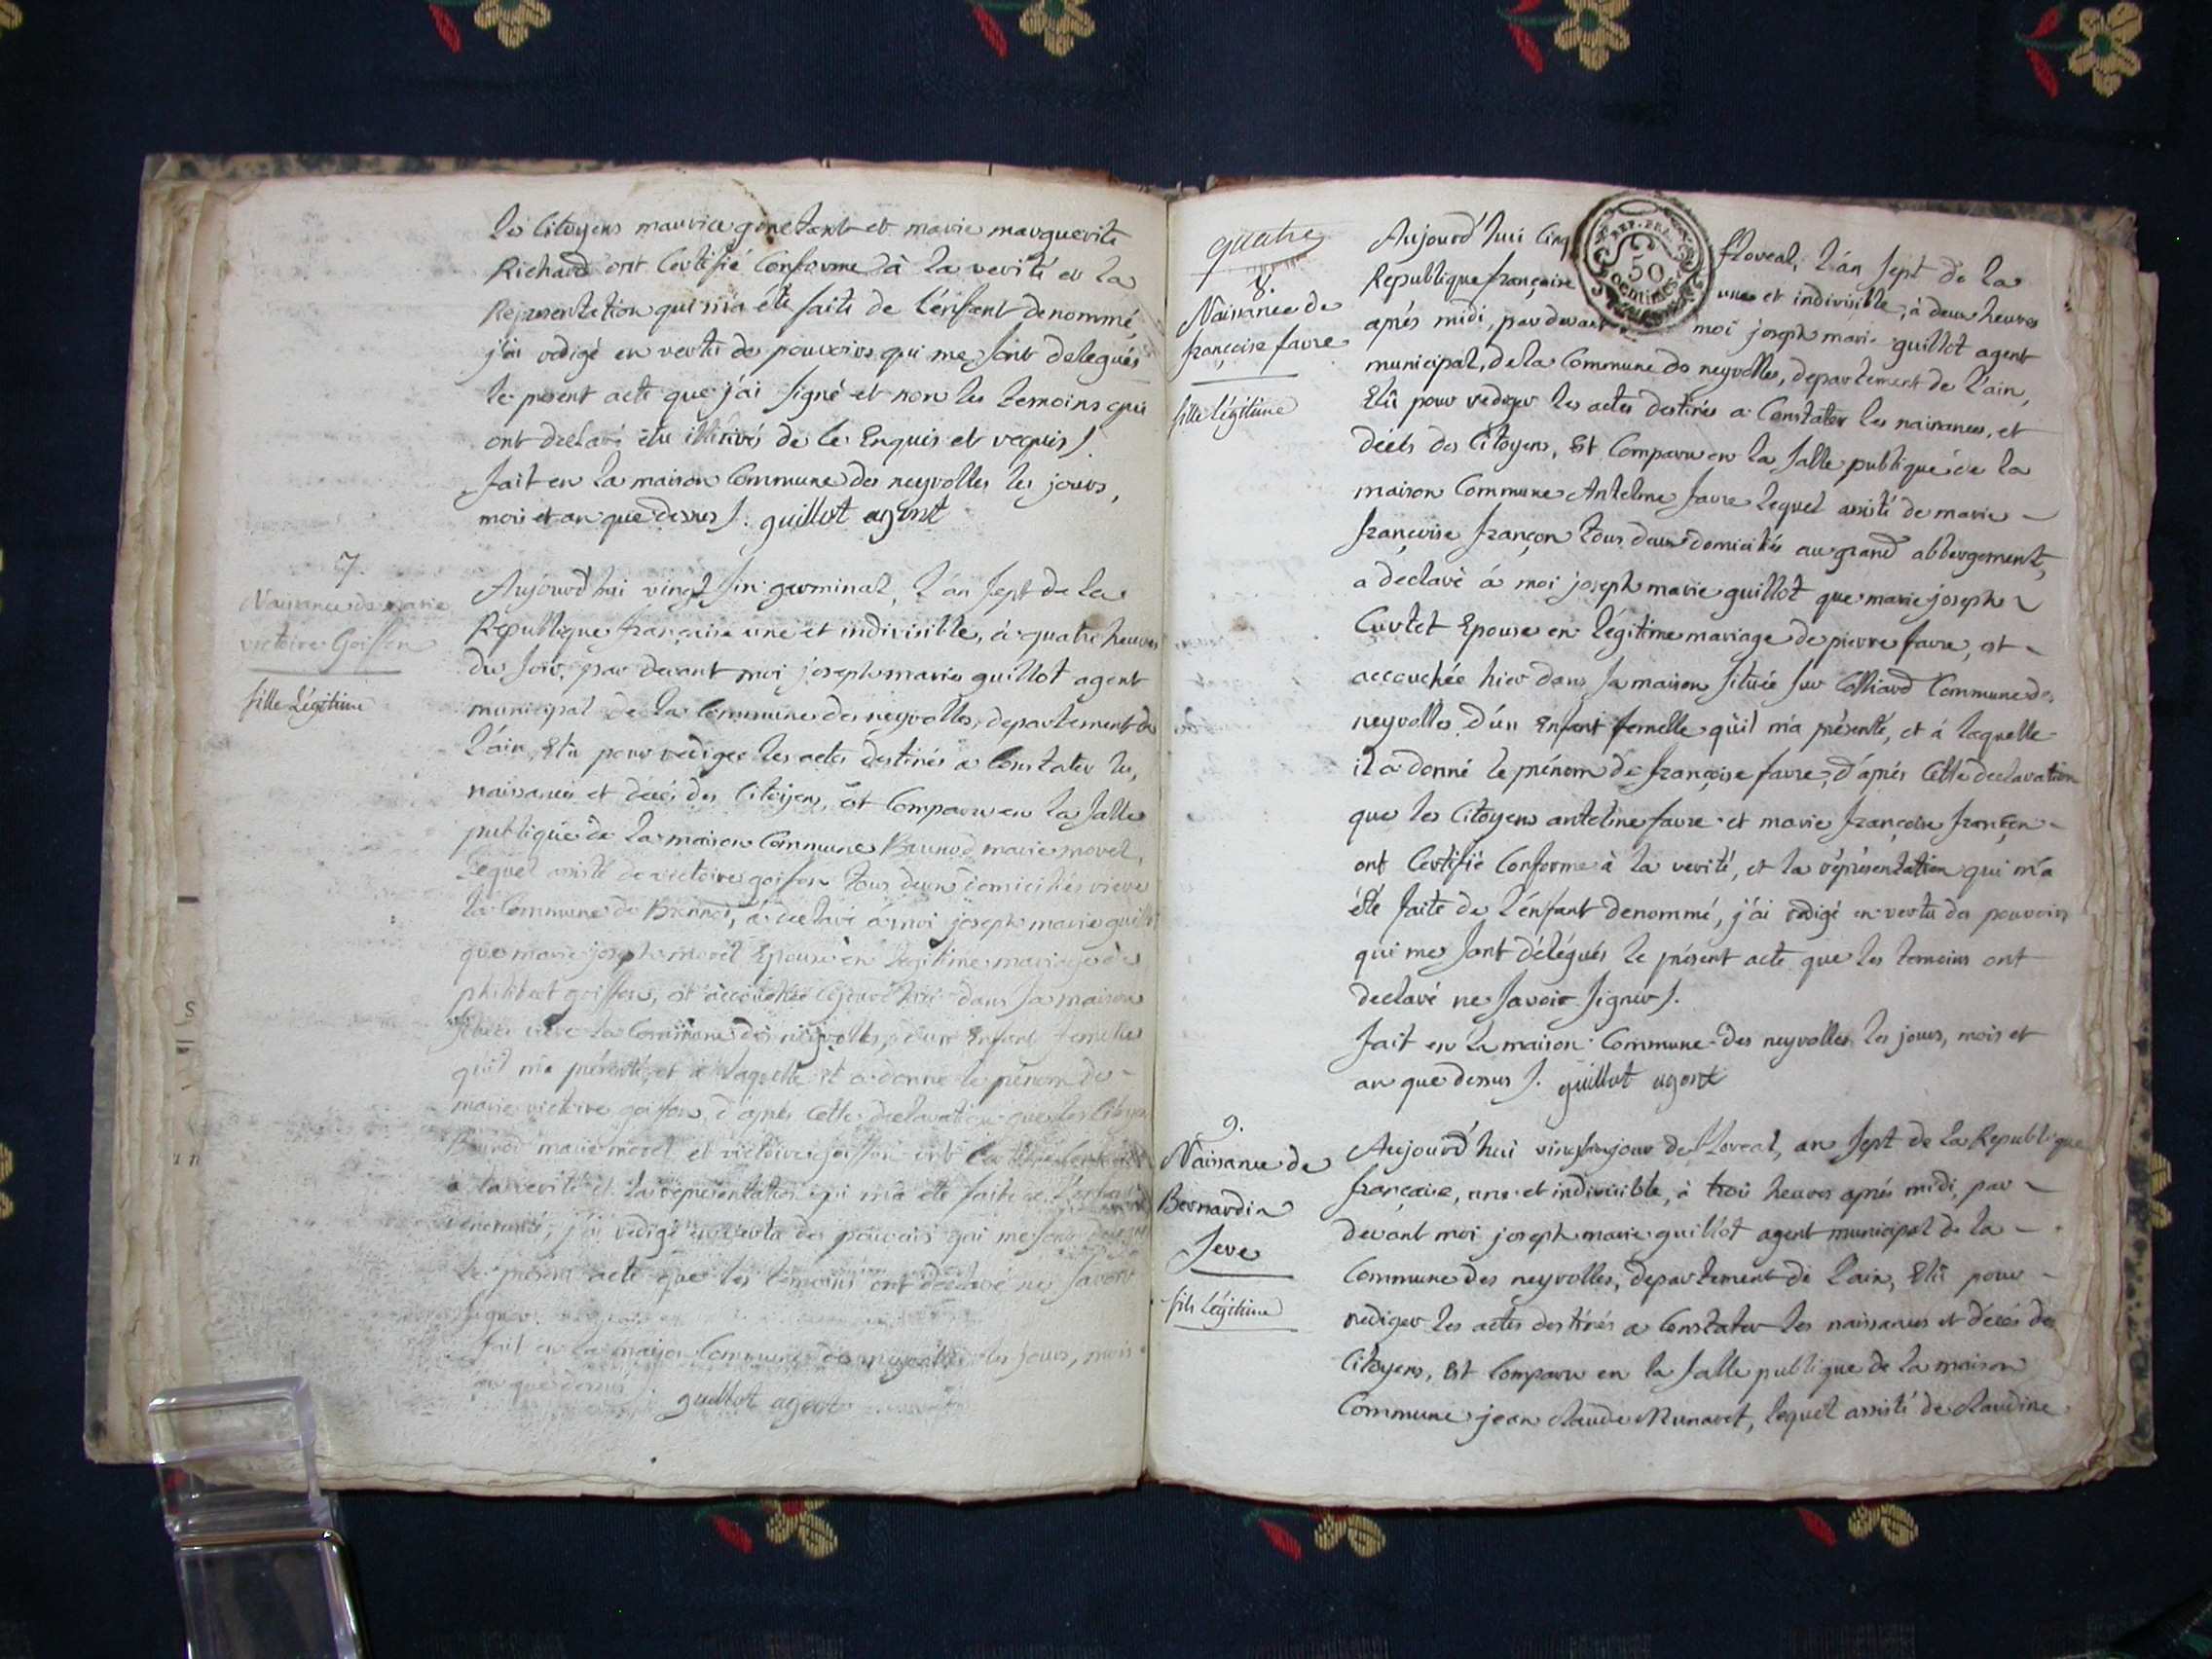 les Citoyens maurice gonetant et marie marguerite
Richard ont Certifié Conforme à la verité et la
Représentation qui m'a été faite de l'enfant denommé,
j'ai redigé en vertu des pouvoirs qui me sont delegués
le present acte que j'ai signé et non les temoins qui
ont declaré être illitirés de ce Enquis et requis /.
fait en la maison Commune des neyrolles les jours,
mois et an que dessus /. guillot agent
7.
Naissance de marie
victoire Goiffon
fille légitime
Aujourd'hui vingt six germinal, l'an sept de la
Republique française une et indivisible, à quatre heures
du soir, par devant moi joseph marie guillot agent
municipal de la Commune des neyrolles, departement de
l'ain, Elû pour rediger les actes destinés a Constater les,
naissances et décés des Citoyens, est Comparu en la salle
publique de la maison Commune Brunod marie morel,
Lequel assisté de victoire goiffon tous deux domiciliés
la Commune de, a declaré à moi joseph marie guillot
que marie joseph morel Epouse en légitime mariage de
philibert goiffon, est accouchée aujourd'hui dans sa maison
la Commune des neyrolles, d'un Enfant femelle
qu'il m'a présenté, et à laquelle il a donné le prénom de
marie victoire goiffon, d'après cette declaration que les Citoyens
Brunod marie morel et victoire goiffon ont Certifié Conforme
à la verité et la representation qui m'a été faite de l'enfant
denommé, j'ai redigé en vertu des pouvoirs qui me sont delegués
le présent acte que les temoins ont declaré ne savoir
signer.
fait en la maison Commune des neyrolles les jours, mois
an que dessus /.
guillot agent
quatre
8.
Naissance de
françoise favre
fille légitime
REP. FRA.
50
centimes
Aujourd'hui Cinq floreal, l'an sept de la
Republique française une et indivisible, à deux heures
après midi, par devant moi joseph marie guillot agent
municipal, de la Commune des neyrolles, departement de l'ain,
Elû pour rediger les actes destinés a Constater les naissances, et
décés des Citoyens, Est Comparu en la salle publique de la
maison Commune Antelme favre lequel assisté de marie
françoise françon tous deux domiciliés au grand abbergement,
a declaré à moi joseph marie guillot que marie joseph
Curtet Epouse en légitime mariage de pierre favre, est
accouchée hier dans sa maison située sur Colliard Commune des
neyrolles d'un Enfant femelle qu'il m'a présenté, et à laquelle
il a donné le prénom de françoise favre, d'après cette declaration
que les Citoyens antelme favre et marie françoise françon
ont Certifié Conforme à la verité, et la réprésentation qui m'a
été faite de l'énfant denommé, j'ai rédigé en vertu des pouvoirs
qui me sont délégués le présent acte que les temoins ont
declaré ne savoir signer /.
fait en la maison Commune des neyrolles les jours, mois et
an que dessus /. guillot agent
9.
Naissance de
Bernardin
Seve
fils légitime
Aujourd'hui jour de floreal, an sept de la Republique
française, une et indivisible, à trois heures après midi, par
devant moi joseph marie guillot agent municipal de la
Commune des neyrolles, departement de l'ain, Elû pour
rediger les actes destinés a Constater les naissances et décés des
Citoyens, Est Comparu en la salle publique de la maison
Commune jean claude Munaret, lequel assisté de claudine